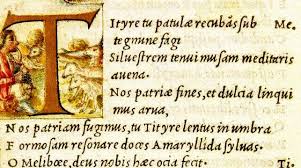 Tityre tu patulæ recubãs sub Me
tegmine fagi
Siluestrem tenui musam meditaris
auena.
Nos patriæ fines, et dulcia linqui
mus arua,
Nos patriam fugimus, tu Tityre lentus in umbra
Formosam resonare doces Amaryllida syluas.
O Meliboee, deus nobis hæc ocia fecit.